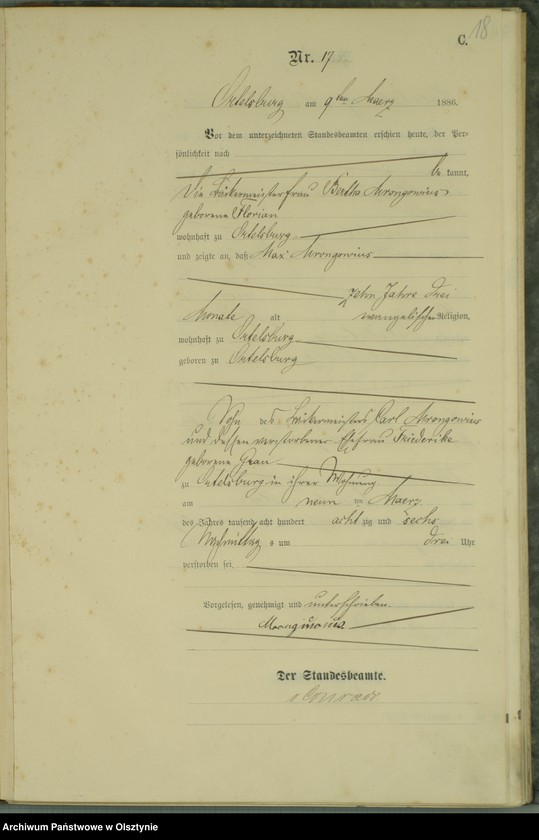 18
C.
Nr. 17
Ortelsburg am 9ten Maerz 1886.
Vor dem unterzeichneten Standesbeamten erschien heute, der Per-
sönlichkeit nach
be kannt,
die Bäckermeisterfrau Bertha Mrongowius
geborene Florian
wohnhaft zu Ortelsburg
und zeigte an, daß Max Mrongowius
zehn Jahre drei
Monate alt evangelischer Religion,
wohnhaft zu Ortelsburg
geboren zu Ortelsburg
Sohn des Bäckermeisters Carl Mrongowius
und dessen verstorbener Ehefrau Friederike
geborene
zu Ortelsburg in ihrer Wohnung
am neun ten Maerz
des Jahres tausend acht hundert acht zig und sechs
Nachmittag s um drei Uhr
verstorben sei.
Vorgelesen, genehmigt und unterschrieben.
Der Standesbeamte.
Conrad
Archiwum Państwowe w Olsztynie